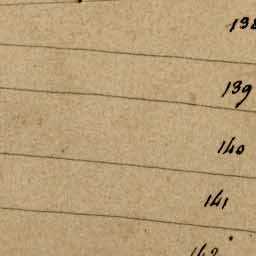 138
139
140
141
142